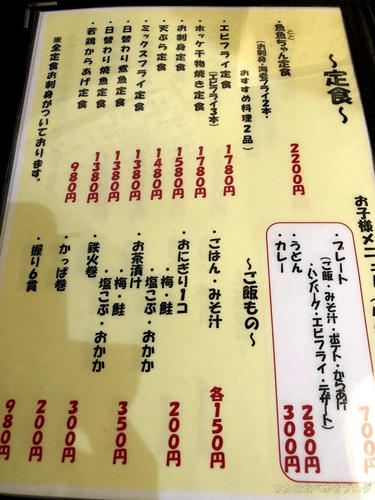 ～定食～
・魚魚ちゃん定食 2200円
とと
(お刺身・海老フライ2本・
おすすめ料理2品)
・エビフライ定食 1780円
(エビフライ3本)
・ホッケ干物焼き定食 1780円
・お刺身定食 1580円
・天ぷら定食 1480円
・ミックスフライ定食 1380円
・日替わり煮魚定食 1380円
・日替わり焼魚定食 1380円
・若鶏からあげ定食 980円
※全定食お刺身がついております。
お子様メニ
・プレート 700
(ご飯・みそ汁・ポテト・からあげ
・ハンバーグ・エビフライ・デザート)
・うどん 280円
・カレー 300円
～ご飯もの～
・ごはん・みそ汁 各150円
・おにぎり1コ 200円
・梅・鮭
・塩こぶ・おかか
・お茶漬け 350円
・梅・鮭
・塩こぶ・おかか
・鉄火巻 300円
・かっぱ巻 200円
・握り6貫 980円